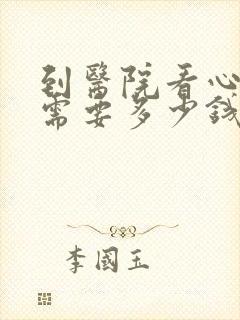 到醫院看心
需要多少錢
李國玉